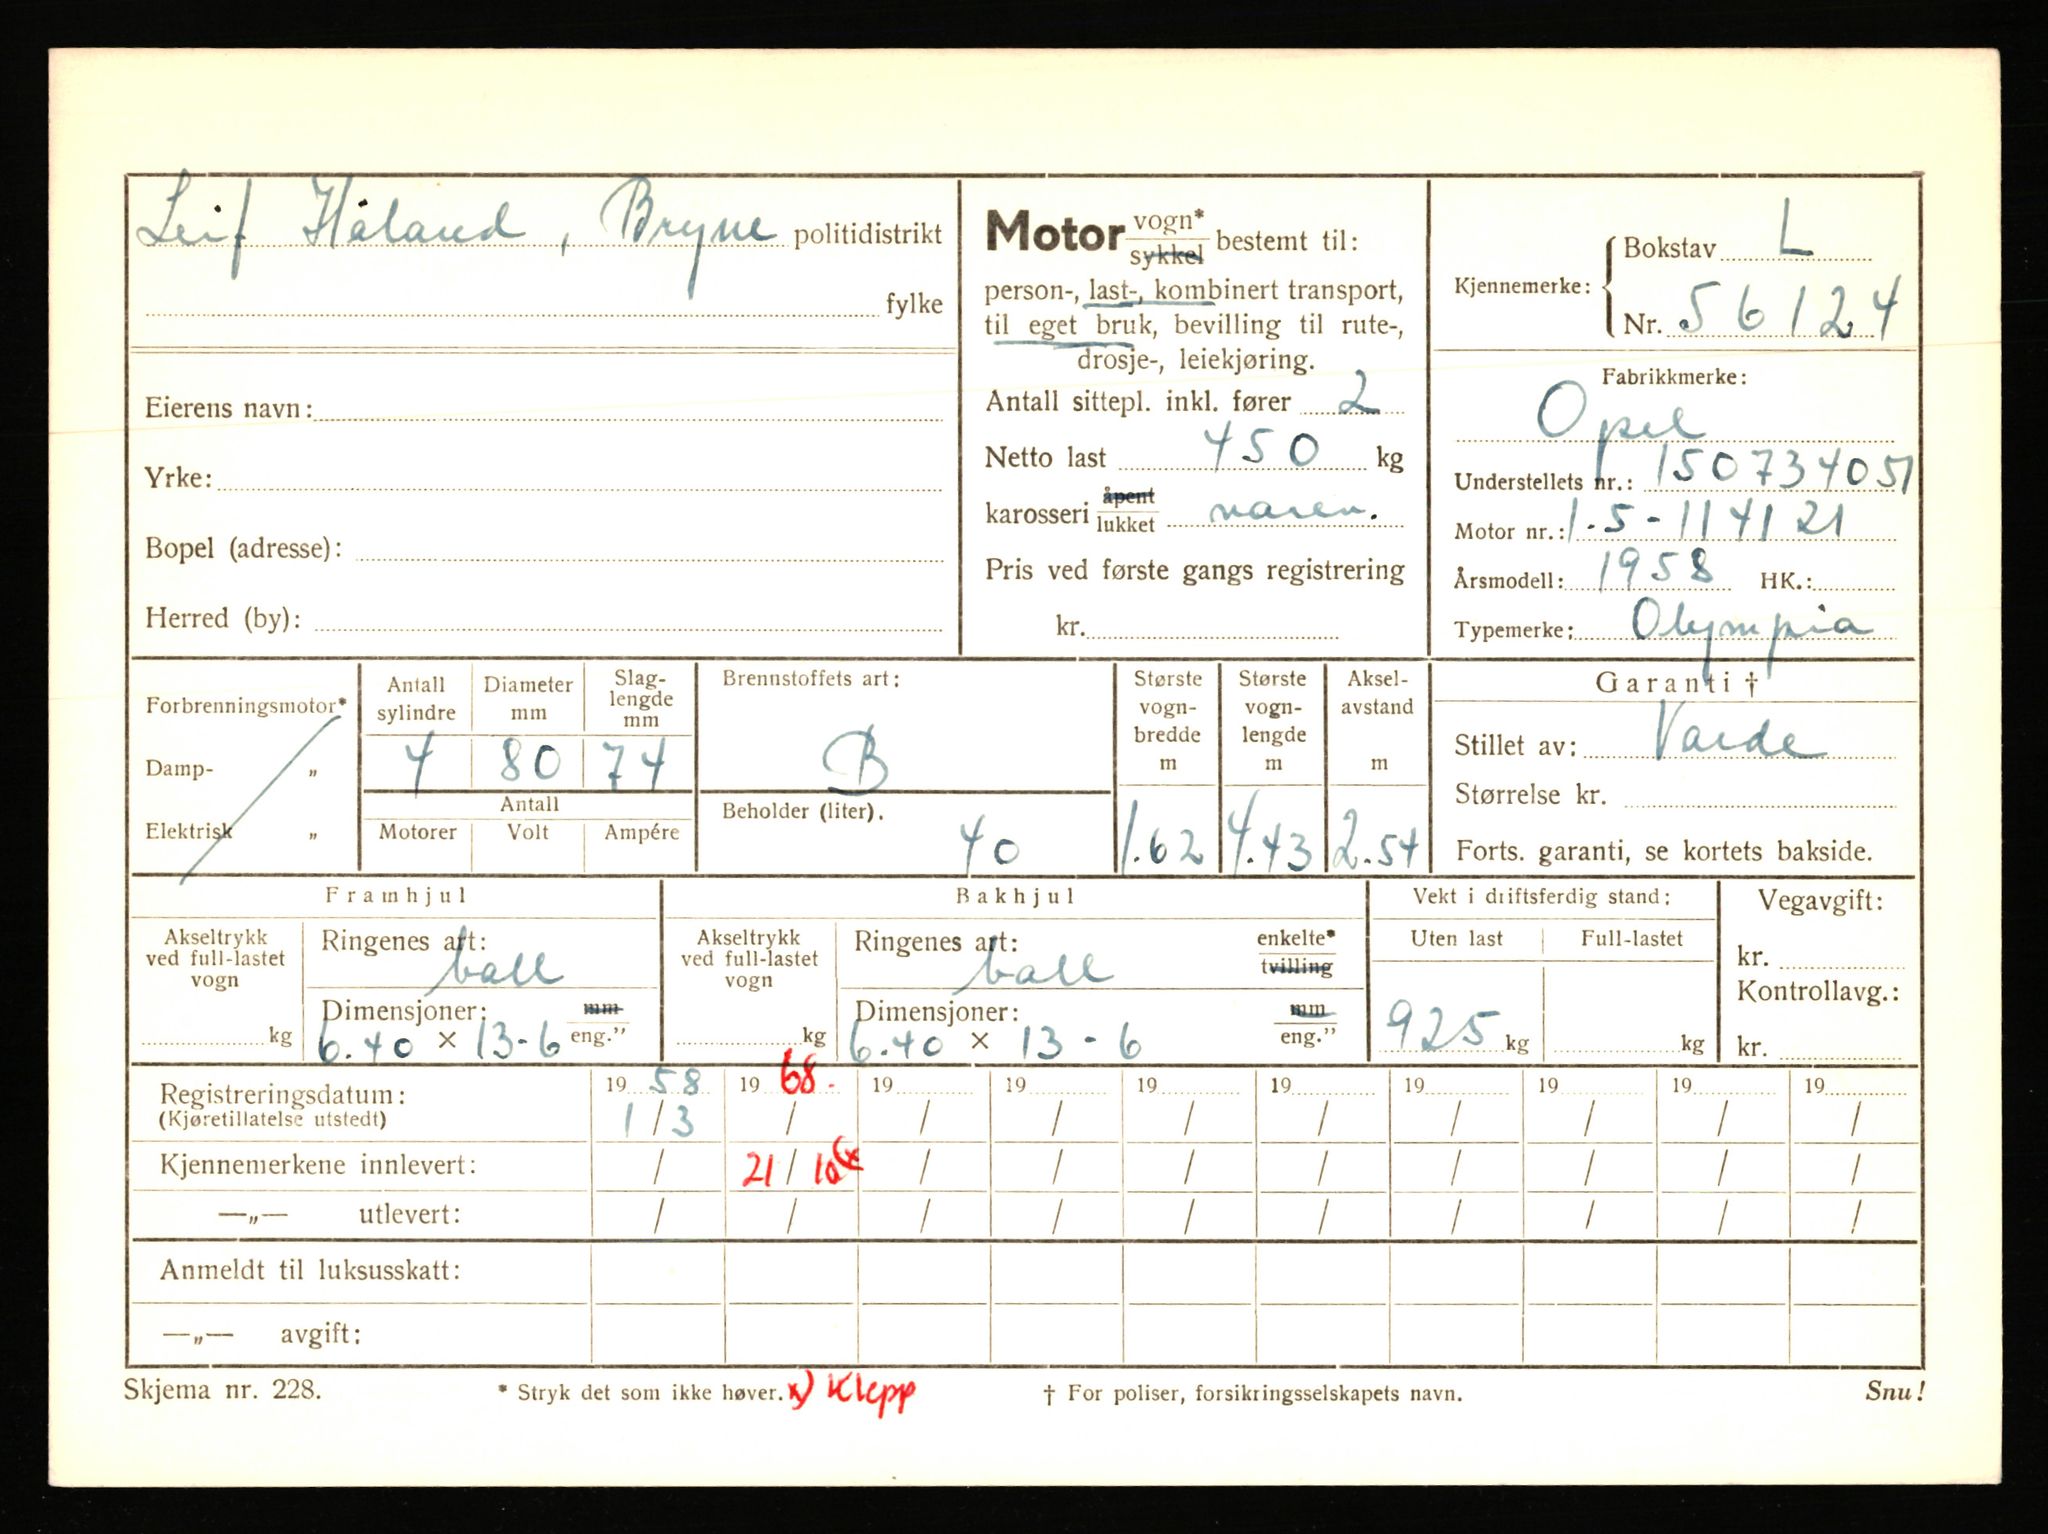 Leif Håland, Bryne politidistrikt
fylke
Eierens navn:
Yrke:
Bopel (adresse):
Herred (by):
Motor vogn* sykkel bestemt til:
person-, last-, kombinert transport,
til eget bruk, bevilling til rute-,
drosje-, leiekjøring.
Antall sittepl. inkl. fører 2
Netto last 450 kg
karosseri åpent lukket varev.
Pris ved første gangs registrering
kr.
Kjennemerke: Bokstav L
Nr. 56124
Fabrikkmerke:
Opel
Understellets nr.: 150734051
Motor nr.: 1.5-114121
Årsmodell: 1958 HK.:
Typemerke: Olympia
Forbrenningsmotor*
Damp- „
Elektrisk „
Antall sylindre Diameter mm Slag-lengde mm
4 80 74
Antall
Motorer Volt Ampére
Brennstoffets art:
B
Beholder (liter).
40
Største vogn-bredde m
1.62
Største vogn-lengde m
4.43
Aksel-avstand m
2.54
Garanti †
Stillet av: Varde
Størrelse kr.
Forts. garanti, se kortets bakside.
Framhjul
Akseltrykk ved full-lastet vogn
kg
Ringenes art:
ball
Dimensjoner: mm
6.40 × 13-6 eng."
Bakhjul
Akseltrykk ved full-lastet vogn
kg
Ringenes art: enkelte*
ball tvilling
Dimensjoner: mm
6.40 × 13-6 eng."
Vekt i driftsferdig stand:
Uten last Full-lastet
925 kg kg
Vegavgift:
kr.
Kontrollavg.:
kr.
Registreringsdatum: 19 58 19 68. 19 19 19 19 19 19 19 19
(Kjøretillatelse utstedt) 1/3 / / / / / / / / /
Kjennemerkene innlevert: / 21/10 (x / / / / / / / /
—„— utlevert: / / / / / / / / / /
Anmeldt til luksusskatt:
—„— avgift:
Skjema nr. 228. * Stryk det som ikke høver. x) Klepp † For poliser, forsikringsselskapets navn. Snu!